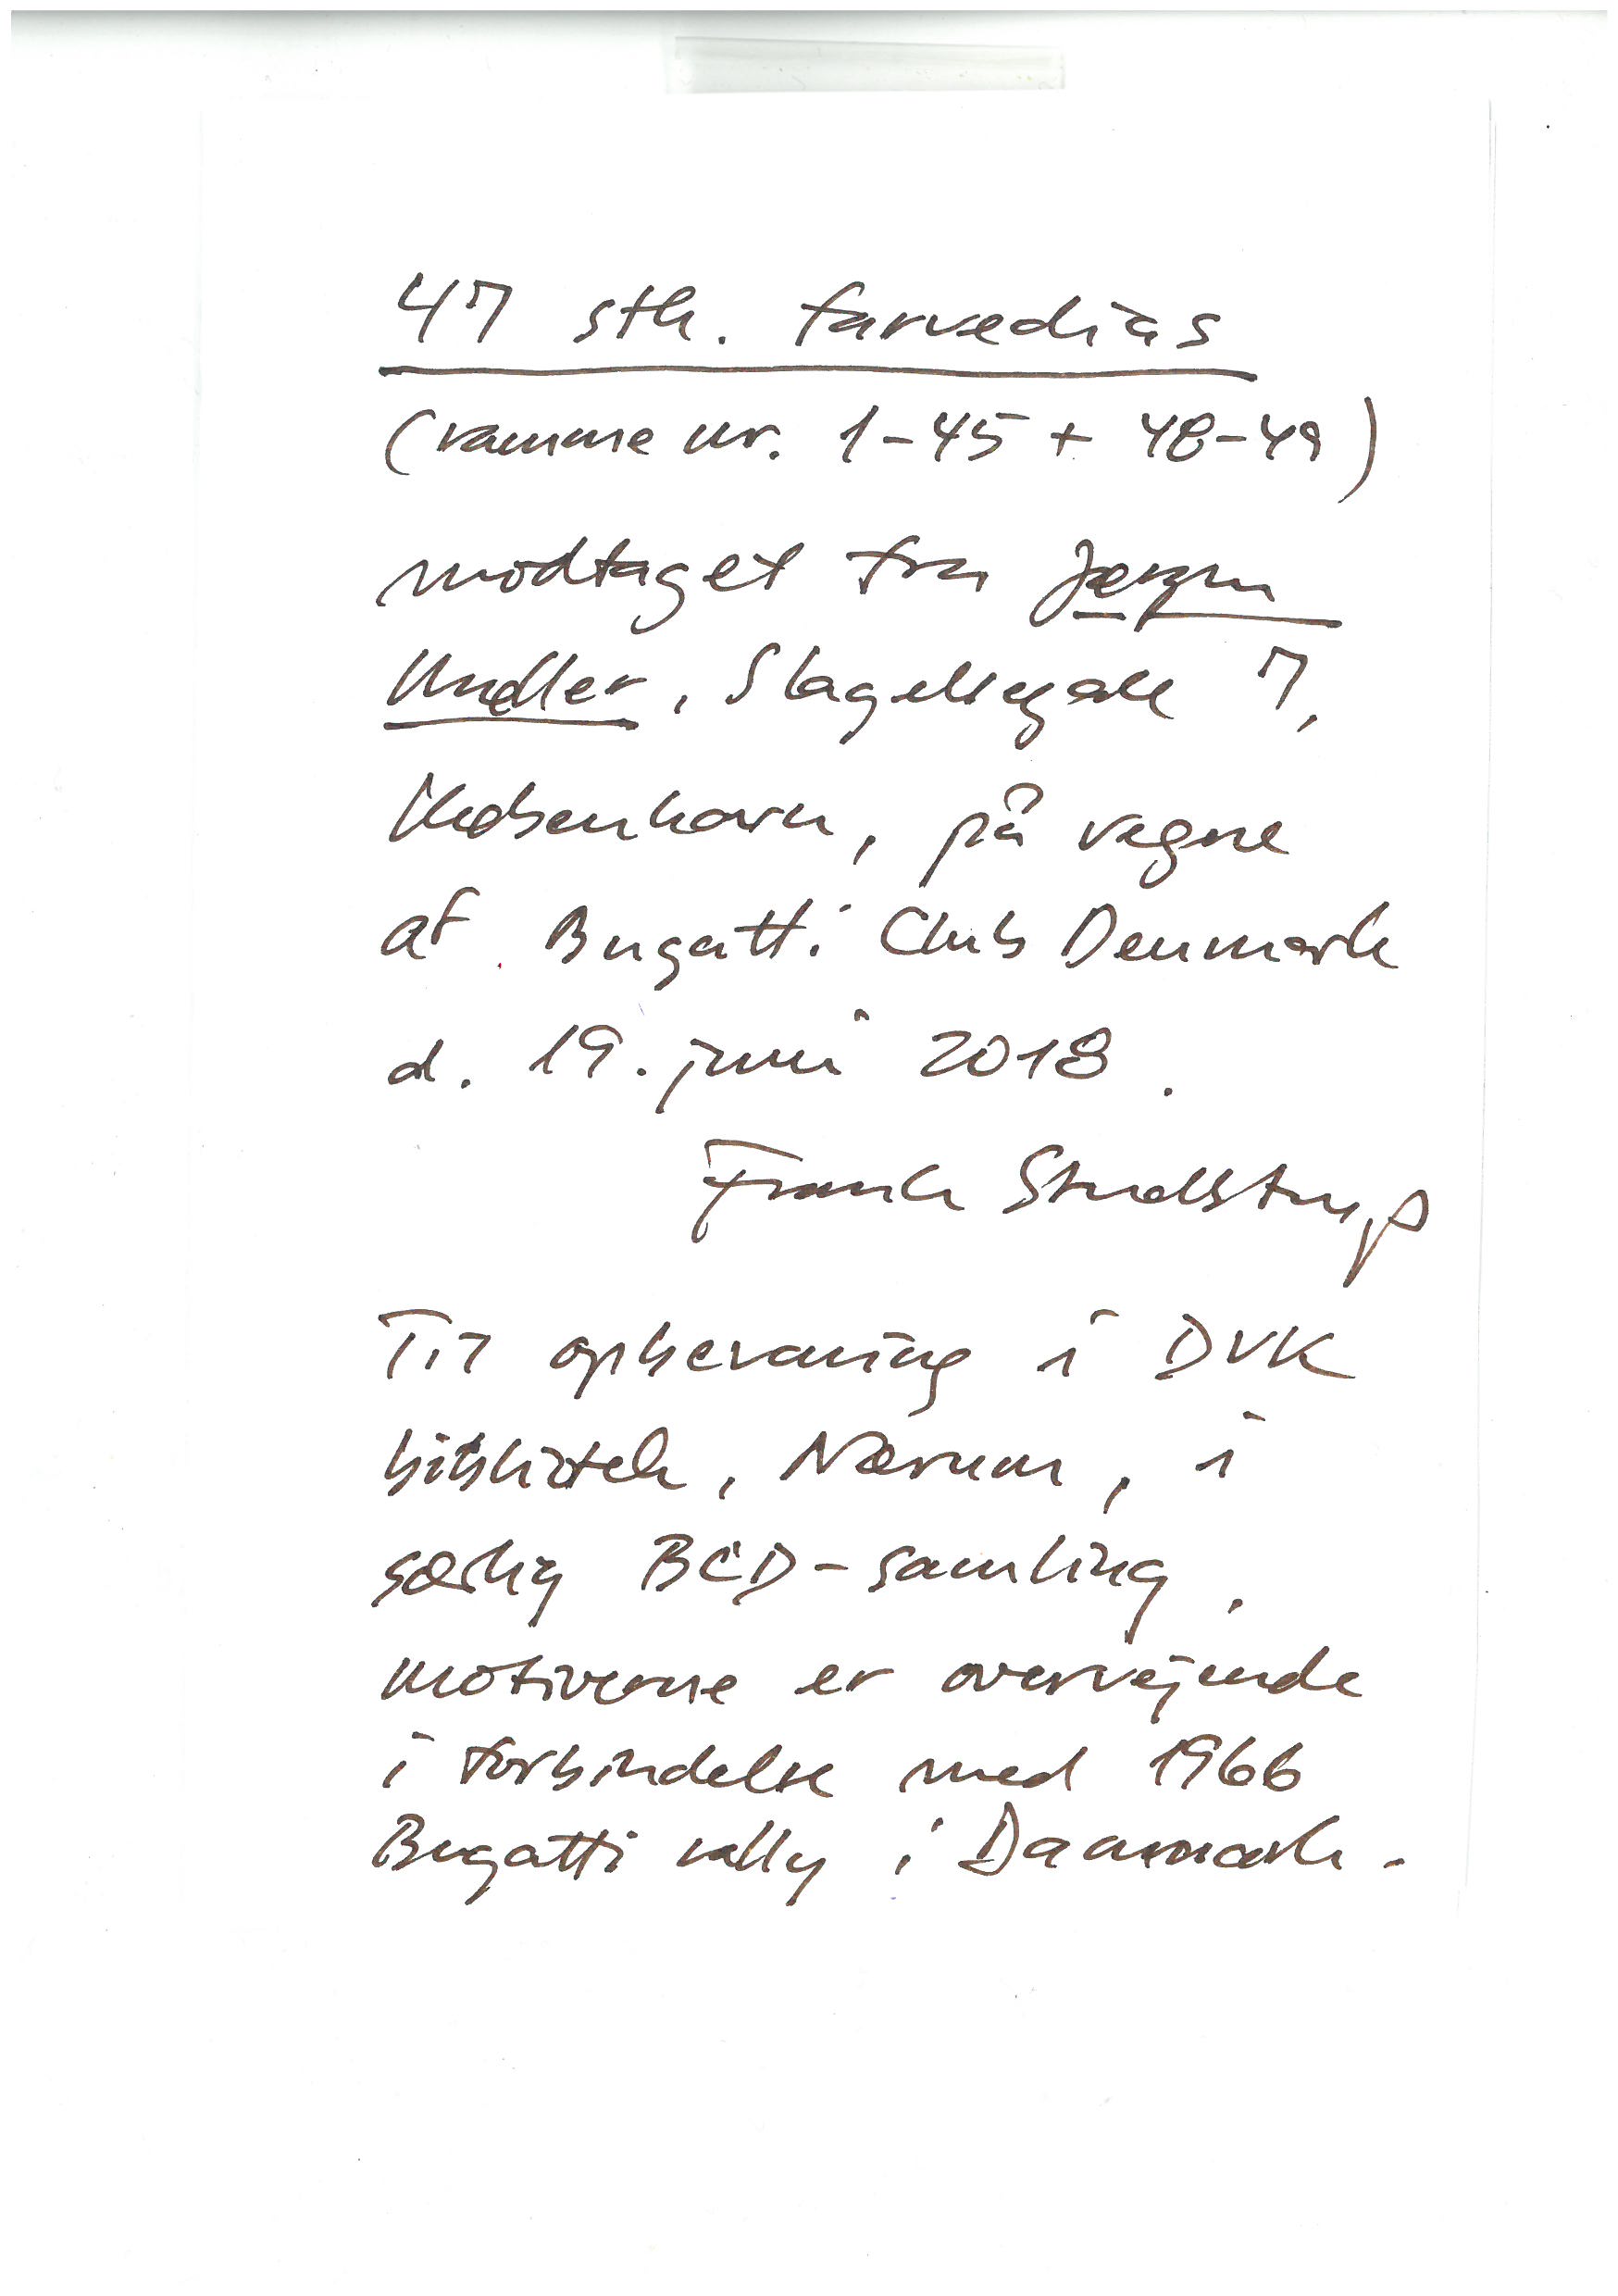 47 stk. farvedias
(ramme nr. 1-45 + 48-49)
modtaget fra Jørgen
, Slagelsegade 7,
København, på vegne
af Bugatti Club Denmark
d. 19. juni 2018.
Frank Studstrup
Til opbevaring i DVK
bibliotek, Nærum, i
særlig BCD-samling,
motiverne er overvejende
i forbindelse med 1966
Bugatti rally i Danmark.